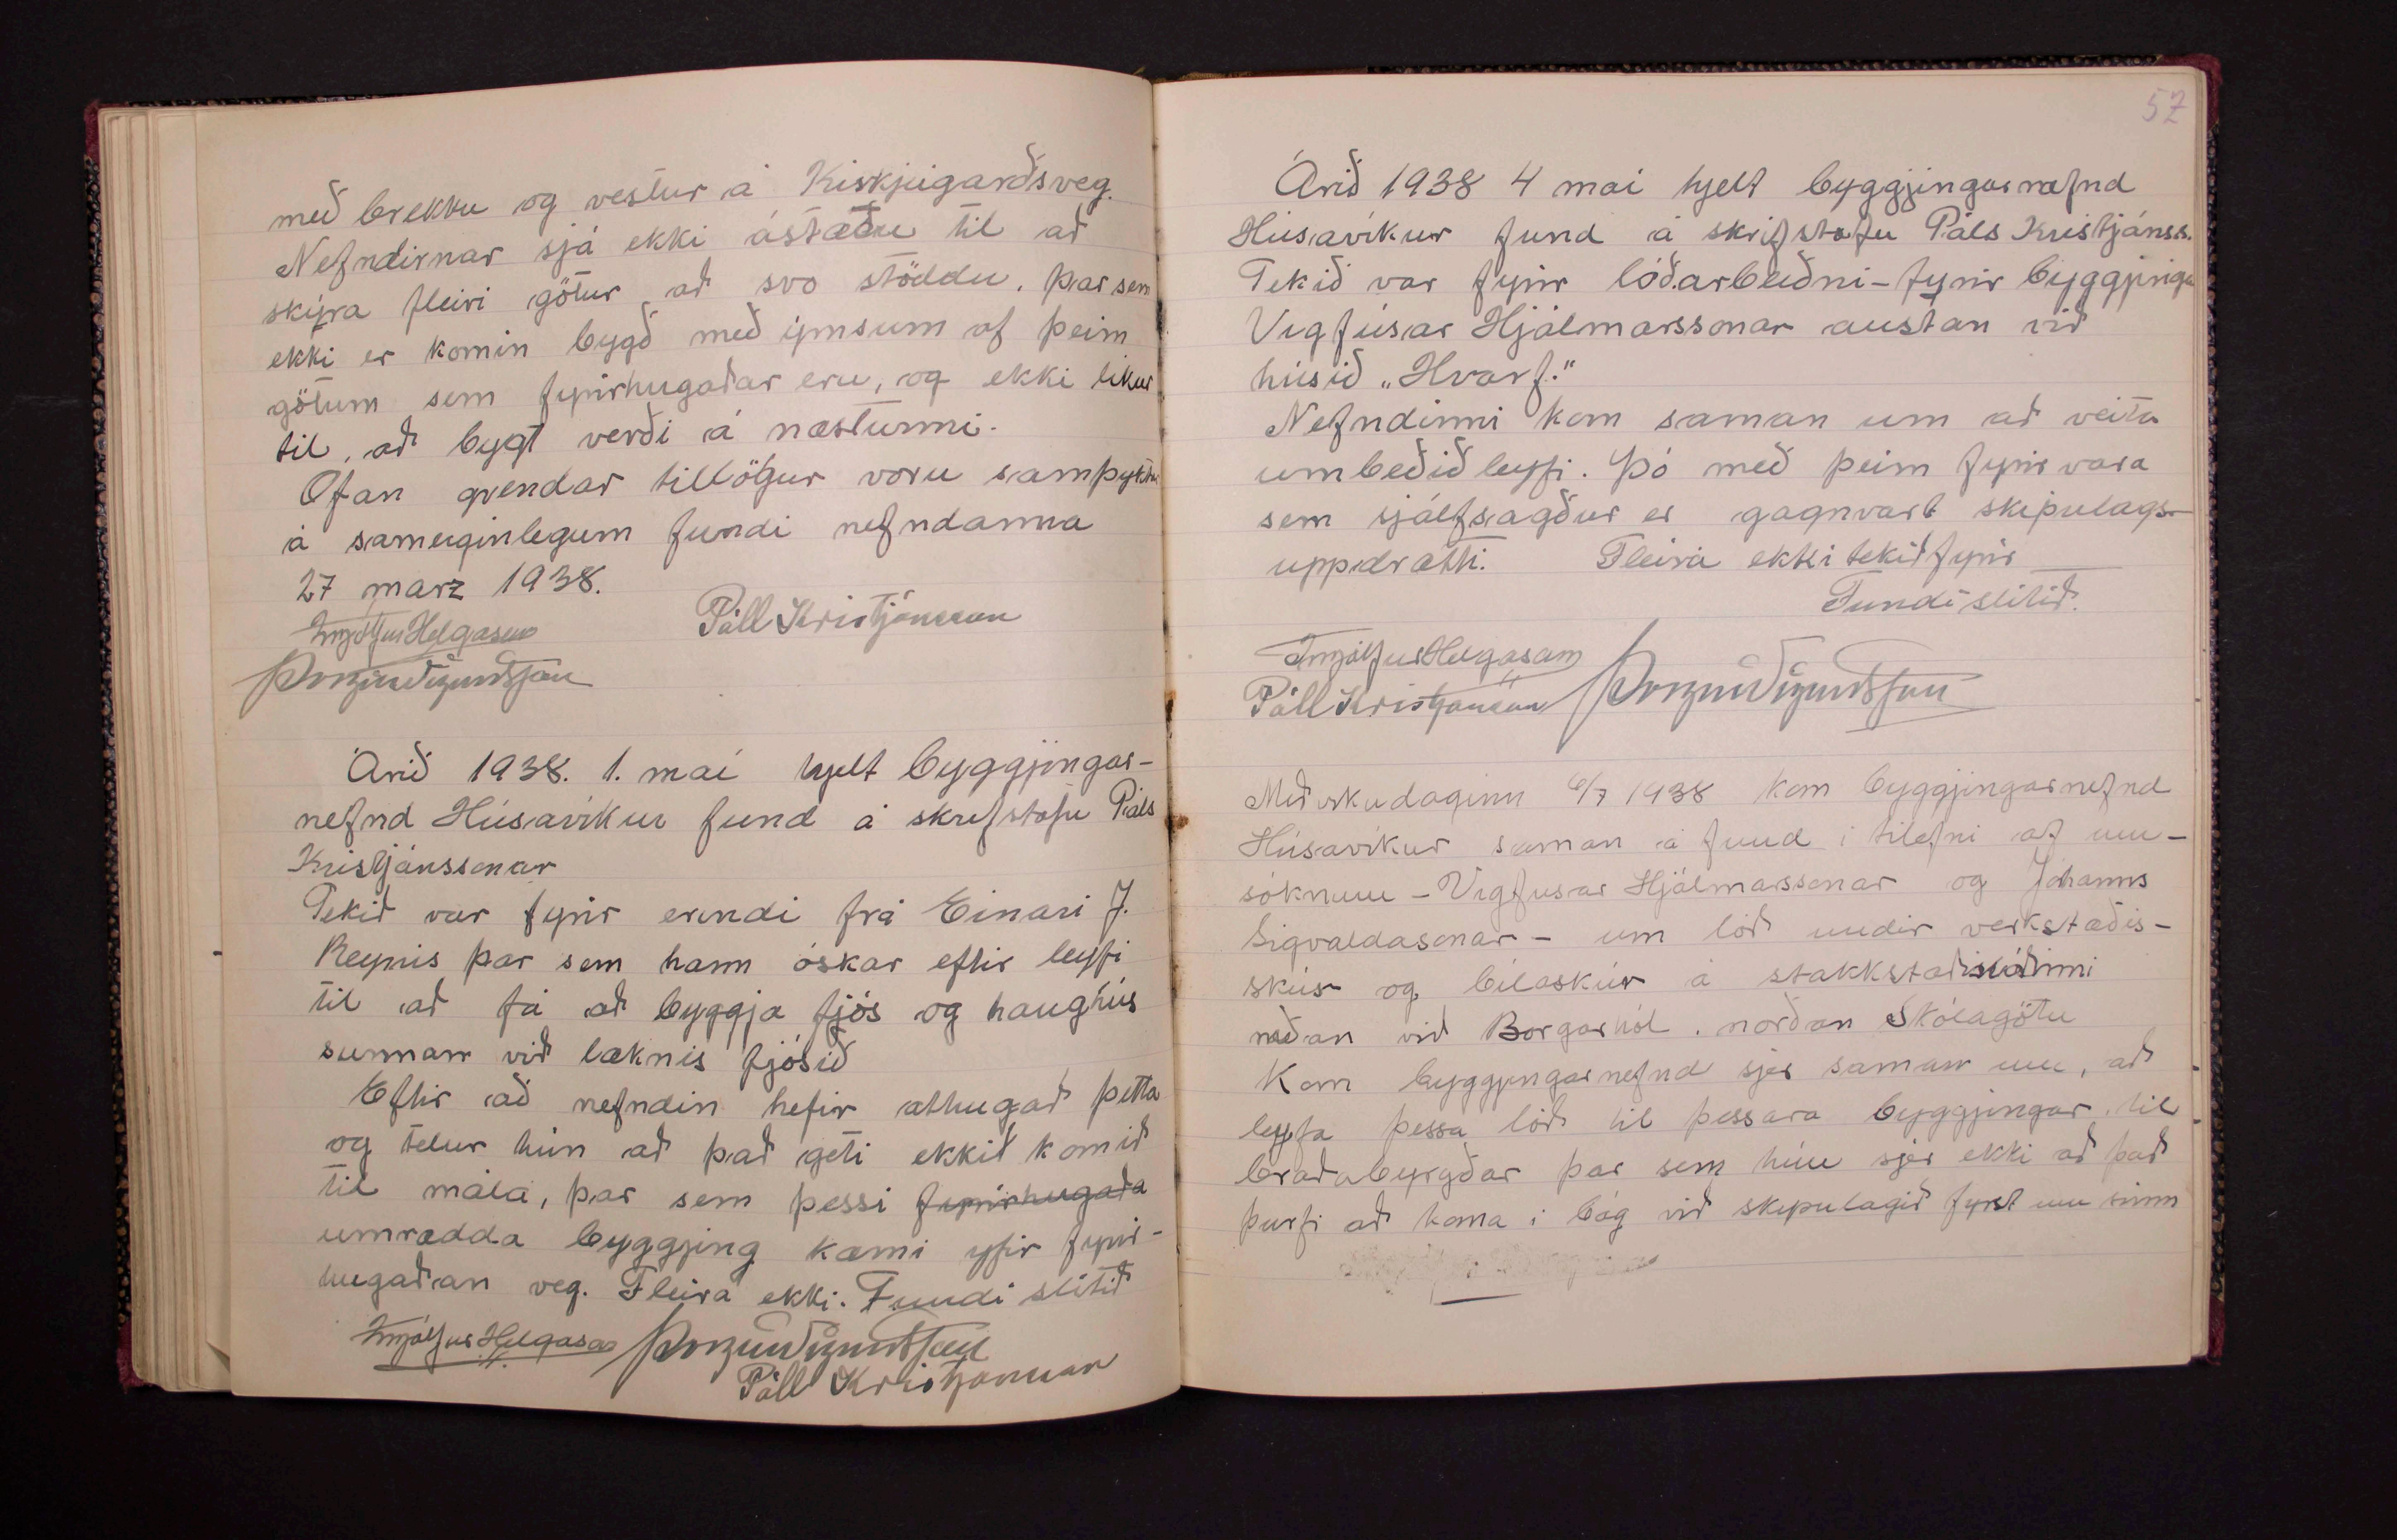 með brekku og vestur á Kirkjugarðsveg.
Nefndirnar sjá ekki ástæðu til að
skýra fleiri götur að svo stöddu, þar sem
ekki er komin bygð með ýmsum af þeim
götum sem fyrirhugaðar eru, og ekki likur
til, að bygt verði á næstunni.
Ofan grendar tillögur voru samþyktar
á sameiginlegum fundi nefndanna
27 marz 1938.
Ingólfur Helgason
Páll Kristjánsson
Árið 1938. 1. mai hjelt byggjingar-
nefnd Húsavíkur fund á skrifstofu Páls
Kristjánssonar
Tekið var fyrir erindi frá Einari J.
Reynis þar sem hann óskar eftir leyfi
til að fá að byggja fjós og haughús
sunnan við læknis fjósið
Eftir að nefndin hefir athugað þetta
og telur hún að það geti ekkit komið
til mála, þar sem þessi fyrirhugaða
umrædda byggjing kæmi yfir fyrir-
hugaðan veg. Fleira ekki. Fundi slitið
Ingólfur Helgason
Páll Kristjánsson
57
Árið 1938 4 mai hjelt byggjingarnefnd
Húsavíkur fund á skrifstofu Páls Kristjánss.
Tekið var fyrir lóðarbeiðni - fyrir byggjingu
Vigfúsar Hjálmarssonar austan við
húsið „Hvarf."
Nefndinni kom saman um að veita
umbeðið leyfi. Þó með þeim fyrirvara
sem sjálfsagður er gagnvart skipulags-
uppdrætti. Fleira ekki tekið fyrir
Fundi slitið.
Ingólfur Helgason
Páll Kristjánsson
Miðvikudaginn 6/7 1938 kom byggjingarnefnd
Húsavíkur saman á fund i tilefni af um-
sóknum - Vigfusar Hjálmarssonar og Jóhanns
Sigvaldasonar - um lóð undir verkstæðis-
skúr og bílaskúr á stakkstæðislóðinni
neðan við Borgarhól, norðan Skólagötu
Kom byggjingarnefnd sjer saman um, að
leyfa þessa lóð til þessara byggjingar, til
bradabyrgðar þar sem hún sjer ekki að það
þurfi að koma i bág við skipulagið fyrst um sinn